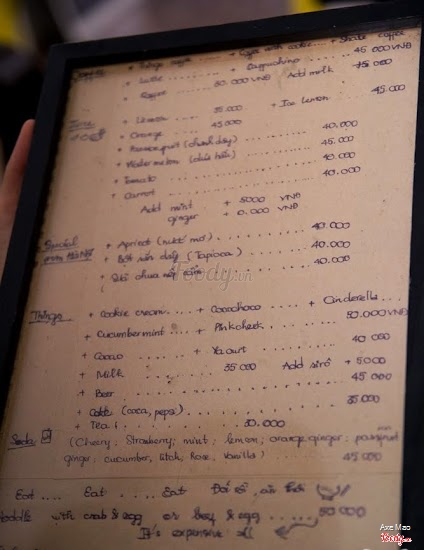 Coffee + + Coffee with cookie... + Shake coffee
+ Latte ........ + Cappuchino .... 45 000 VNĐ
+ 30.000 VNĐ Add milk 15 000
Juice + Lemon .... 35.000 + Ice lemon .... 45 000
+ Orange ..... 45000
+ Passionfruit (chanh dây) ........ 40.000
+ Watermelon (dưa hấu) ........ 45.000
+ Tomato ........ 40.000
+ Carrot ........ 40.000
Add mint + 5000 VNĐ
ginger + 0.000 VNĐ
Special from Hà Nội + Apricot (nước mơ) ........ 40 000
+ Bột sắn dây (Tapioca) ........ 40.000
+ Sữa chua nếp cẩm ........ 40.000
Today.vn
Things + Cookie cream .... + Coonchoco ..... + Cinderella ...
+ Cucumbermint .... + Pinkcheek ........ 50.000 VNĐ
+ Cacao ..... + Yaourt ........ 40 000
+ Milk ........ 35 000 Add sirô + 5000
+ Beer ........ 45 000
+ (coca, pepsi) ........ 35 000
+ Tea ........ 30.000
Soda (Cherry; Strawberry; mint; lemon; orange ginger; passionfruit
ginger; cucumber, litchi, Rose, Vanilla) ........ 45 000
Eat .... Eat .... Eat Đói rồi, ăn thôi
Noodle with crab & egg or beef & egg ..... 50 000
It's expensive :((
Axe Mao
Today.vn